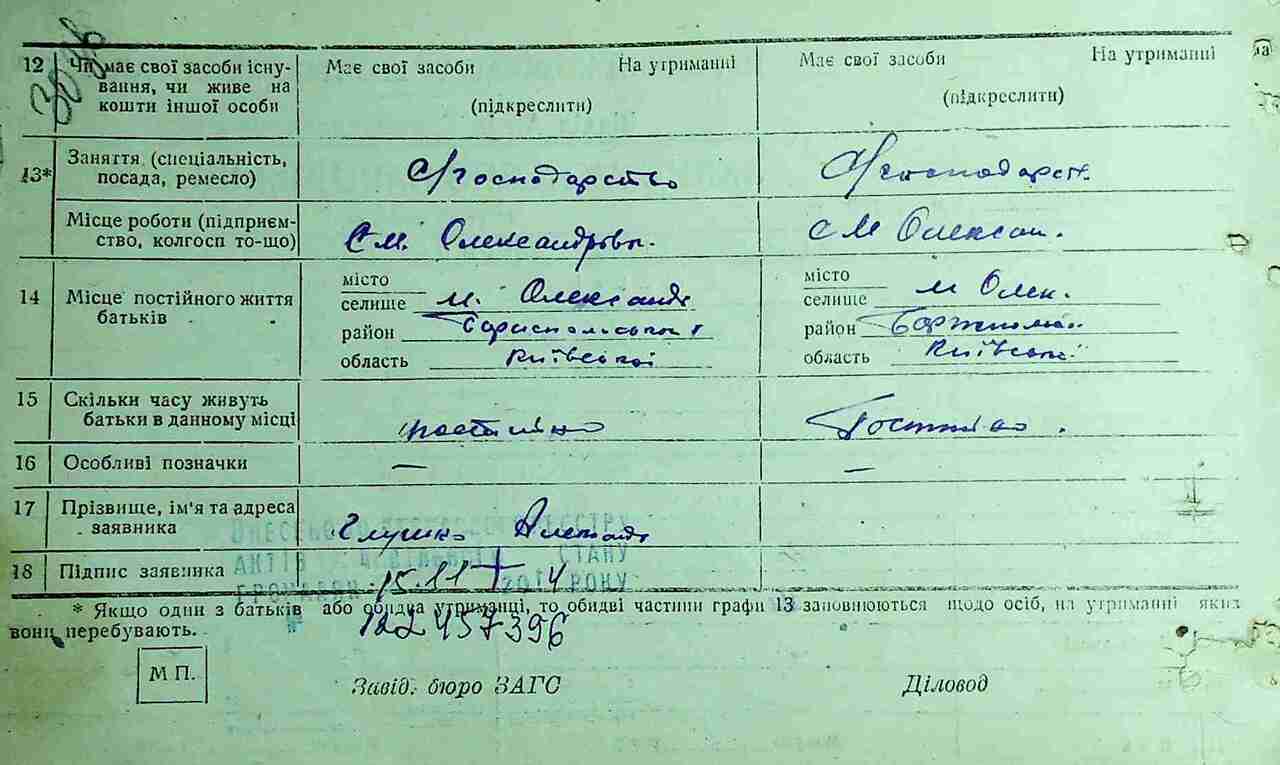 12 Чи має свої засоби існу- Має свої засоби На утриманні Має свої засоби На утриманні
вання, чи живе на
кошти іншої особи (підкреслити) (підкреслити)
13* Заняття (спеціальність,
посада, ремесло) С/господарство С/господарст.
Місце роботи (підприєм-
ство, колгосп то-що) с м. Олександрівк. с м Олексан.
14 Місце постійного життя
батьків
місто місто
селище м. Олександ селище м Олек.
район Бориспольський район
область Київської область Київської
15 Скільки часу живуть
батьки в данному місці постійно Постійно.
16 Особливі позначки — —
17 Прізвище, ім'я та адреса
заявника Глушко
ДО ДЕРЖАВНОГО РЕЄСТРУ
18 Підпис заявника АКТІВ ЦИВІЛЬНОГО СТАНУ
ГРОМАДЯН 15.11 2014 РОКУ
* Якщо один з батьків або обидва утриманці, то обидві частини графи 13 заповнюються щодо осіб, на утриманні яких
вони перебувають.
122457396
М П.
Завід. бюро ЗАГС Діловод